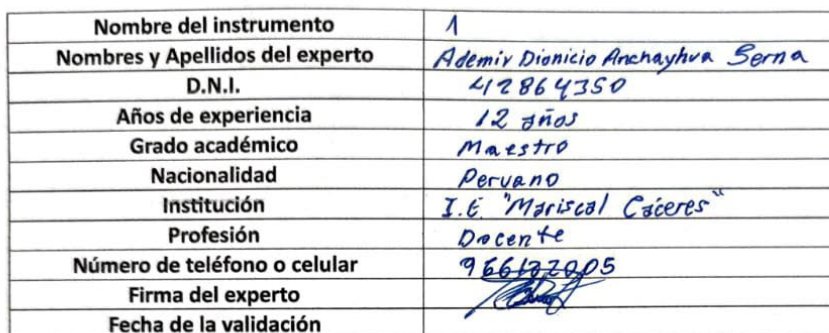 Nombre del instrumento 1
Nombres y Apellidos del experto Ademir Dionicio Anchayhua Serna
D.N.I. 42864350
Años de experiencia 12 años
Grado académico Maestro
Nacionalidad Peruano
Institución I.E. "Mariscal Cáceres"
Profesión Docente
Número de teléfono o celular
Firma del experto
Fecha de la validación